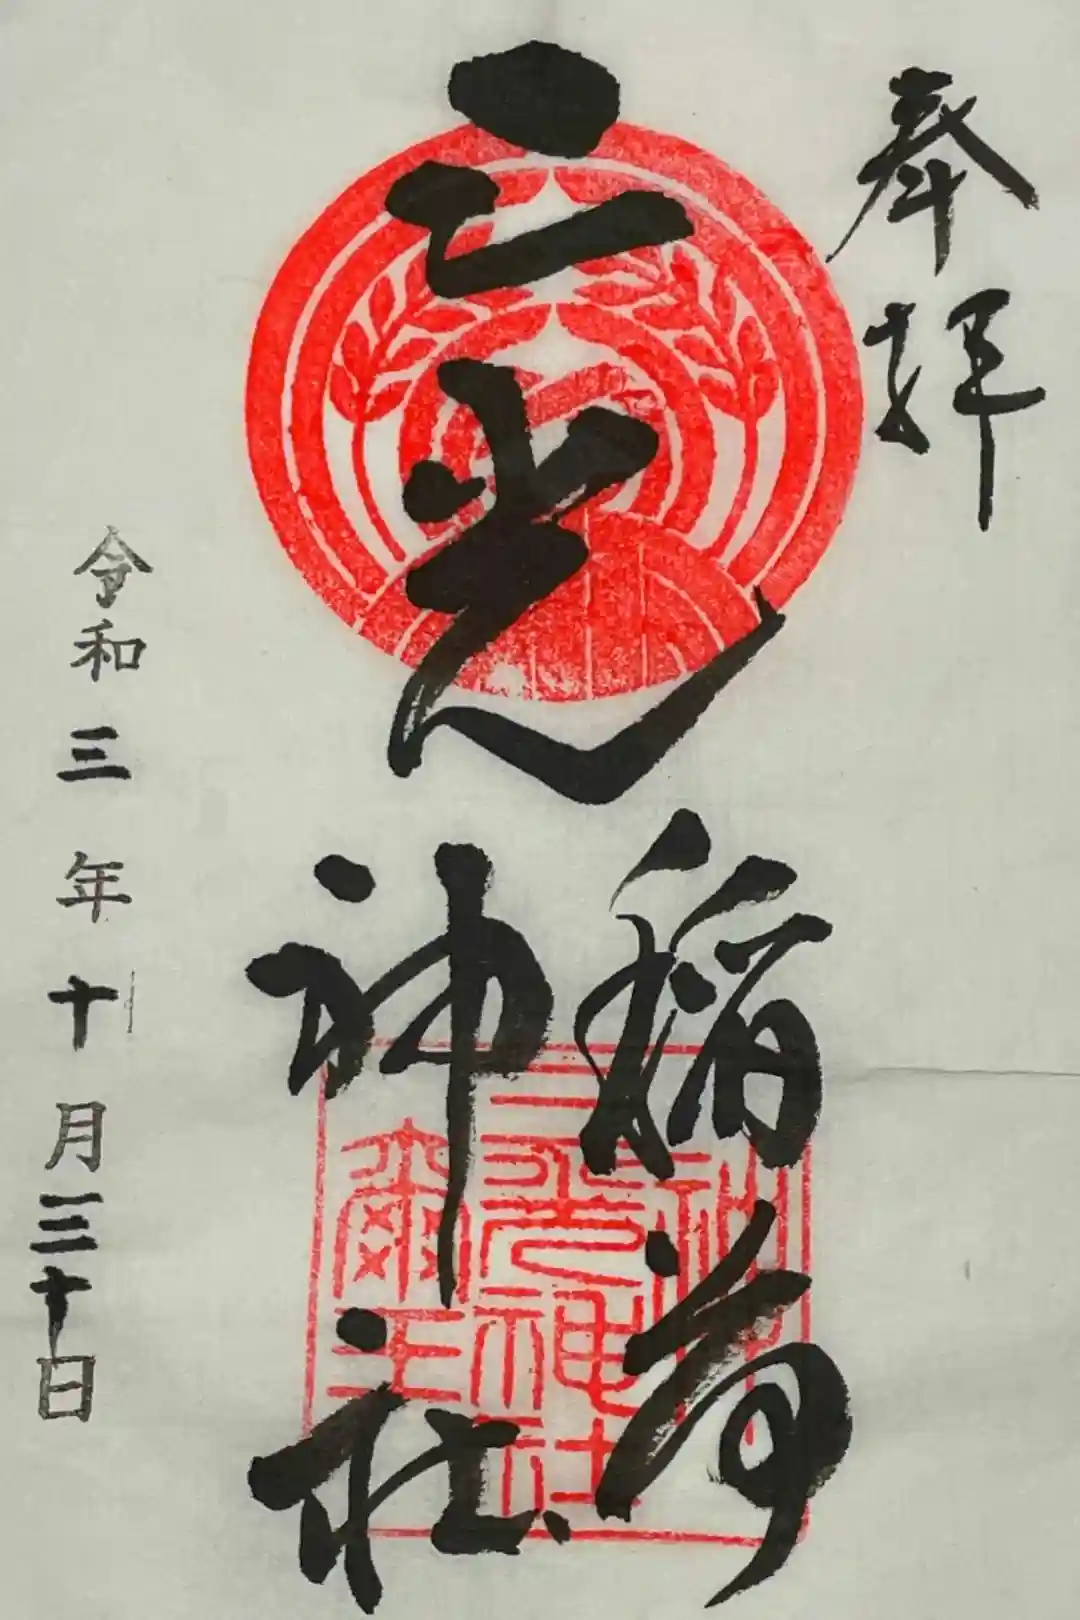 奉拝
三光
稲荷
神社
三光神社
璽
令和三年十月三十日